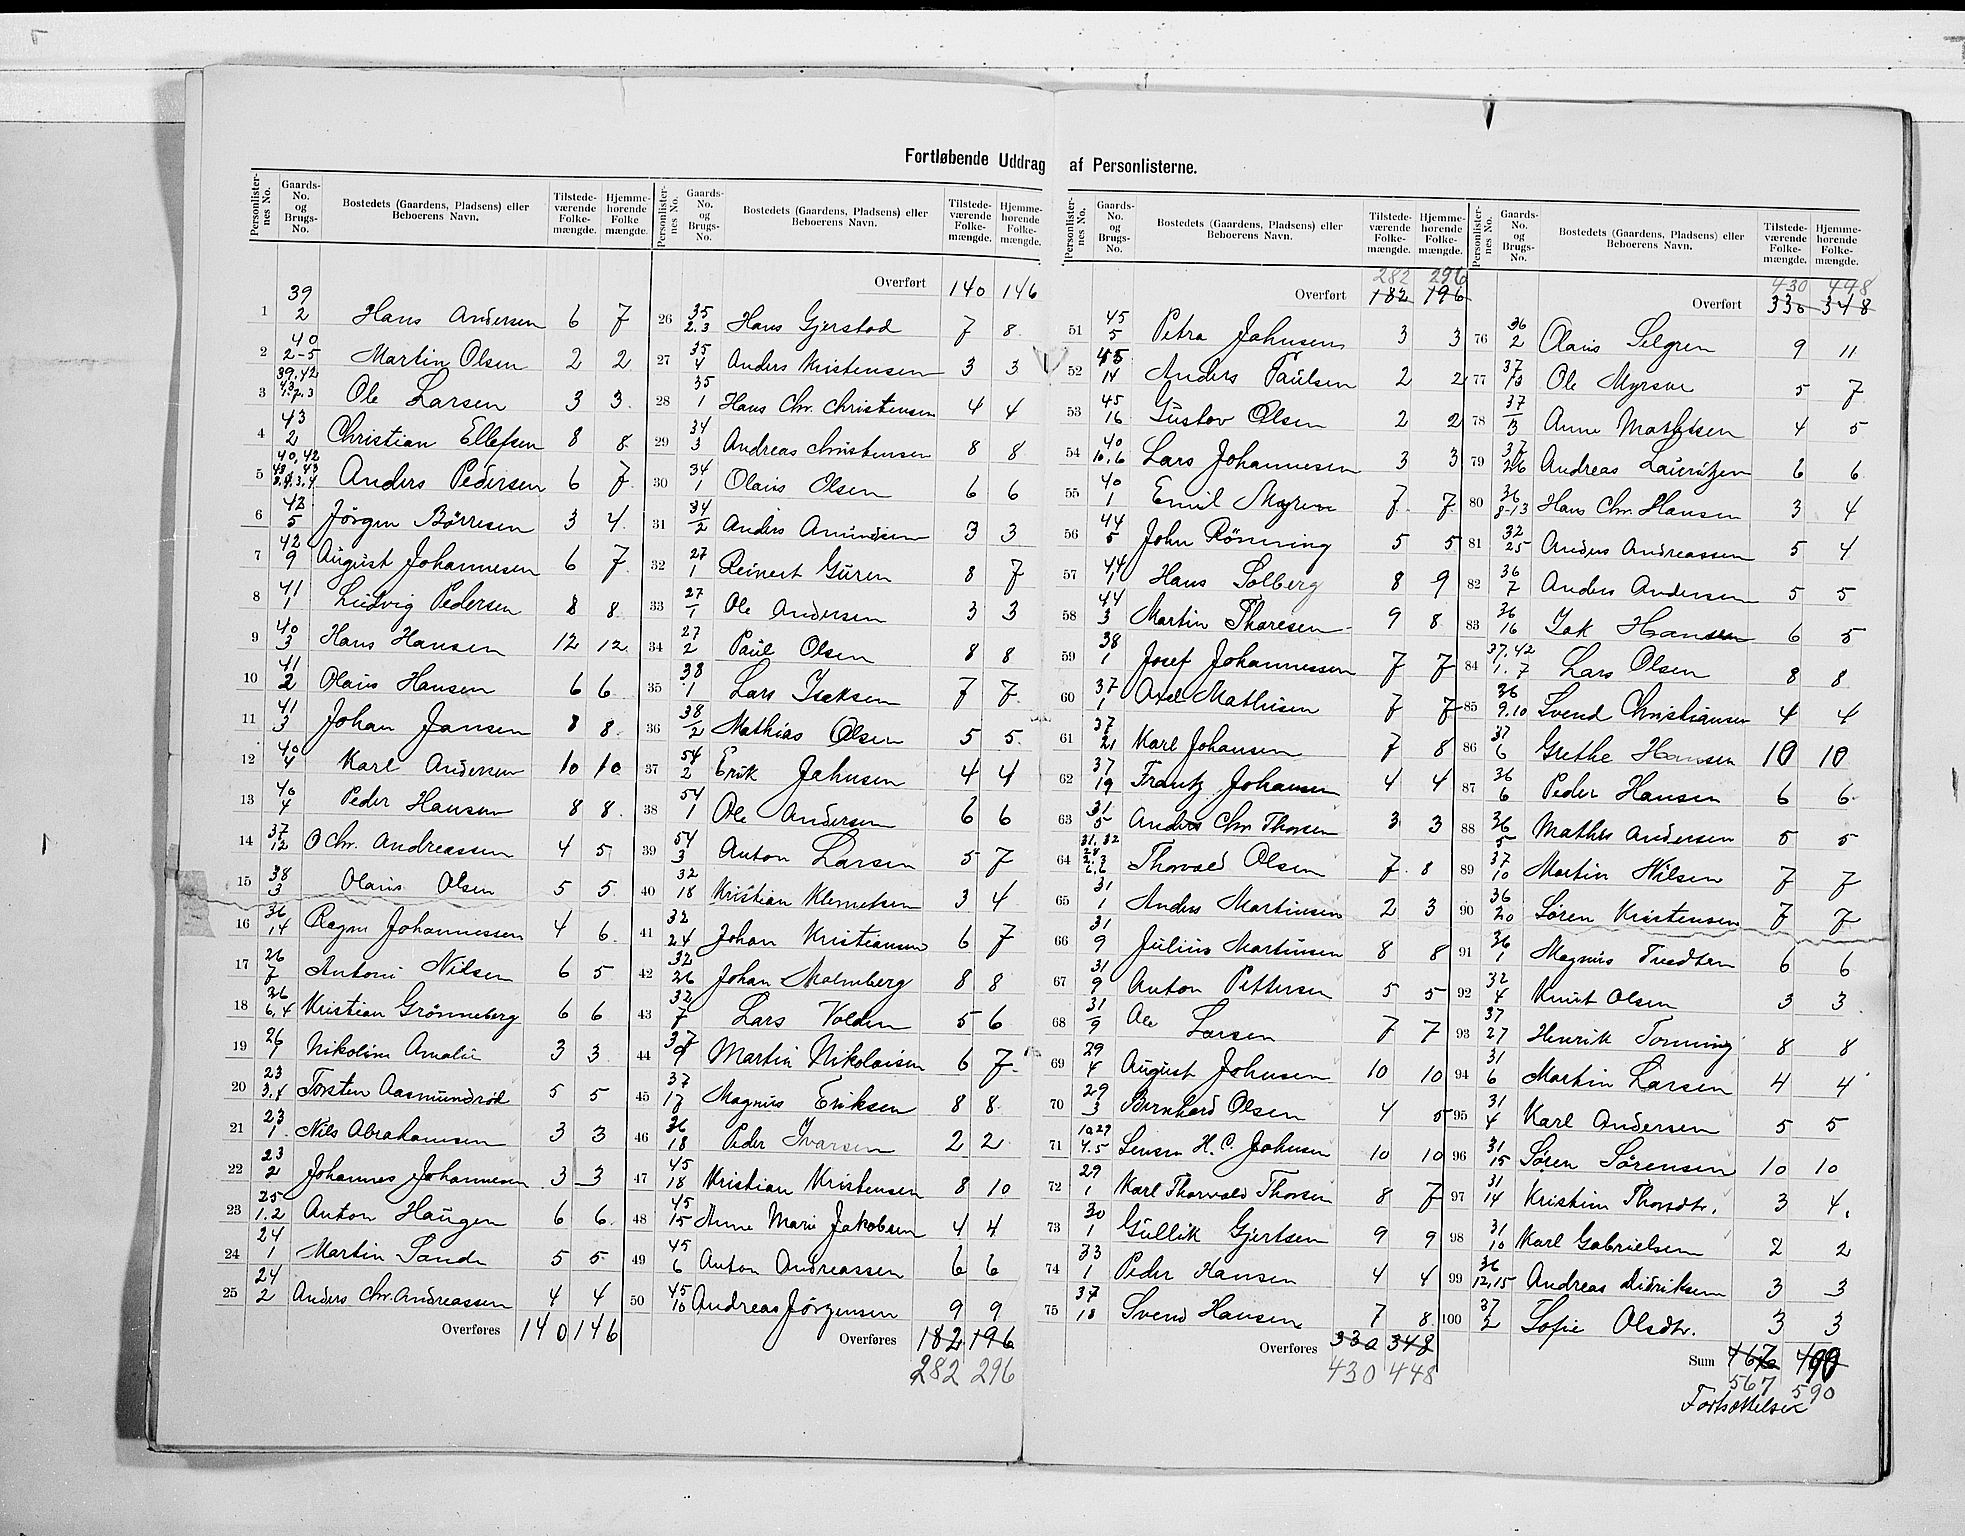 Fortløbende Uddrag af Personlisterne.
Personlister-nes No. | Gaards-No. og Brugs-No. | Bostedets (Gaardens, Pladsens) eller Beboerens Navn. | Tilstede-værende Folke-mængde. | Hjemme-hørende Folke mængde.
1 39/2 Hans Andersen 6 7
2 40/2-5 Martin Olsen 2 2
3 39.42 Ole Larsen 3 3
4 43/2 Christian Ellefsen 8 8
5 40,42 Anders Pedersen 6 7
6 42/5 Jörgen Börresen 3 4
7 42/9 August Johannesen 6 7
8 41/1 Ludvig Pedersen 8 8
9 40/3 Hans Hansen 12 12
10 41/2 Olaus Hansen 6 6
11 41/3 Johan Jansen 8 8
12 40/4 Karl Andersen 10 10
13 40/4 Peder Hansen 8 8
14 37/12 O Chr. Andreassen 4 5
15 38/3 Olaus Olsen 5 5
16 36/14 Ragn Johannessen 4 6
17 26/7 Antoni Nilsen 6 5
18 26/6,4 Kristian Grönneberg 6 6
19 26/1 Nikoline Amalie 3 3
20 23/3,4 Torsten Aasmundröd 5 5
21 23/1 Nils Abrahamsen 3 3
22 23/2 Johannes Johannesen 3 3
23 25/1.2 Anton Haugen 6 6
24 24/1 Martin Sande 5 5
25 24/2 Anders Chr. Andreassen 4 4
Overføres 140 146
Personlister-nes No. | Gaards-No. og Brugs-No. | Bostedets (Gaardens, Pladsens) eller Beboerens Navn. | Tilstede-værende Folke-mængde. | Hjemme-hørende Folke-mængde.
Overført 140 146
26 35/2.3 Hans Gjerstad 7 8
27 35/4 Anders Kristensen 3 3
28 35/1 Hans Chr. Christensen 4 4
29 34/3 Andreas Christensen 8 8
30 34/1 Olaus Olsen 6 6
31 34/2 Anders Amundsen 3 3
32 27/1 Reinert Guren 8 7
33 27/1 Ole Andersen 3 3
34 27/2 Paul Olsen 8 8
35 38/1 Lars Isaksen 7 7
36 38/2 Mathias Olsen 5 5
37 54/2 Erik Johnsen 4 4
38 54/1 Ole Andersen 6 6
39 54/3 Anton Larsen 5 7
40 32/18 Kristian Klemetsen 3 4
41 32/24 Johan Kristiansen 6 7
42 32/26 Johan Malmberg 8 8
43 32/7 Lars Volden 5 6
44 37/9 Martin Nikolaisen 6 7
45 37/17 Magnus Eriksen 8 8
46 36/18 Peder Ivarsen 2 2
47 45/18 Kristian Kristensen 8 10
48 45/15 Anne Marie Jakobsen 4 4
49 45/6 Anton Andreassen 6 6
50 45/10 Andreas Jörgensen 9 9
Overføres 182 196
282 296
Personlister-nes No. | Gaards-No. og Brugs-No. | Bostedets (Gaardens, Pladsens) eller Beboerens Navn. | Tilstede-værende Folke-mængde. | Hjemme-hørende Folke-mængde.
282 296
Overført 182 196
51 45/5 Petra Johnsen 3 3
52 45/14 Anders Paulsen 2 2
53 45/16 Gustav Olsen 2 2
54 40/10,6 Lars Johannesen 3 3
55 40/1 Emil Myren 7 7
56 44/5 John Rönning 5 5
57 44/1 Hans Solberg 8 9
58 44/3 Martin Thoresen 9 8
59 38/1 Josef Johannessen 7 7
60 37/1 Axel Mathisen 7 7
61 37/21 Karl Johansen 7 8
62 37/19 Frantz Johansen 4 4
63 31/5 Anders Chr Thorsen 3 3
64 31.32 Thorvald Olsen 7 8
65 31/1 Anders Martinsen 2 3
66 31/9 Julius Martinsen 8 8
67 31/9 Anton Pettersen 5 5
68 31/9 Ole Larsen 7 7
69 29/4 August Johnsen 10 10
70 29/3 Bernhard Olsen 4 5
71 H. C. Johnsen 10 10
72 29/1 Karl Thorvald Thorsen 8 7
73 30/1 Gullik Gjertsen 9 9
74 33/1 Peder Hansen 4 4
75 37/18 Svend Hansen 7 8
Overføres 330 348
430 448
Personlister-nes No. | Gaards-No. og Brugs-No. | Bostedets (Gaardens, Pladsens) eller Beboerens Navn. | Tilstede-værende Folke-mængde. | Hjemme-hørende Folke-mængde.
430 448
Overført 330 348
76 36/2 Olaus Selgren 9 11
77 37/13 Ole Myrsve 5 7
78 37/3 Anne Mathisen 4 5
79 37/26 Andreas Lauritzen 6 6
80 36/8-13 Hans Chr. Hansen 3 4
81 32/25 Anders Andreassen 5 4
82 36/7 Anders Andersen 5 5
83 36/16 Isak Hansen 6 5
84 37.42/1.7 Lars Olsen 8 8
85 36/9.10 Svend Christiansen 4 4
86 37/6 Grethe Hansen 10 10
87 36/6 Peder Hansen 6 6
88 36/5 Mathis Andersen 5 5
89 37/10 Martin Nilsen 7 7
90 36/20 Sören Kristensen 7 7
91 36/1 Magnus Tvedten 6 6
92 32/4 Knut Olsen 3 3
93 37/27 Henrik Torning 8 8
94 31/6 Martin Larsen 4 4
95 31/4 Karl Andersen 5 5
96 31/15 Sören Sörensen 10 10
97 31/14 Kristine Thorsdtr. 3 4
98 31/10 Karl Gabrielsen 2 2
99 36/12,15 Andreas Didriksen 3 3
100 37/2 Sofie Olsdtr. 3 3
Sum 467 490
567 590
Fortsættelser